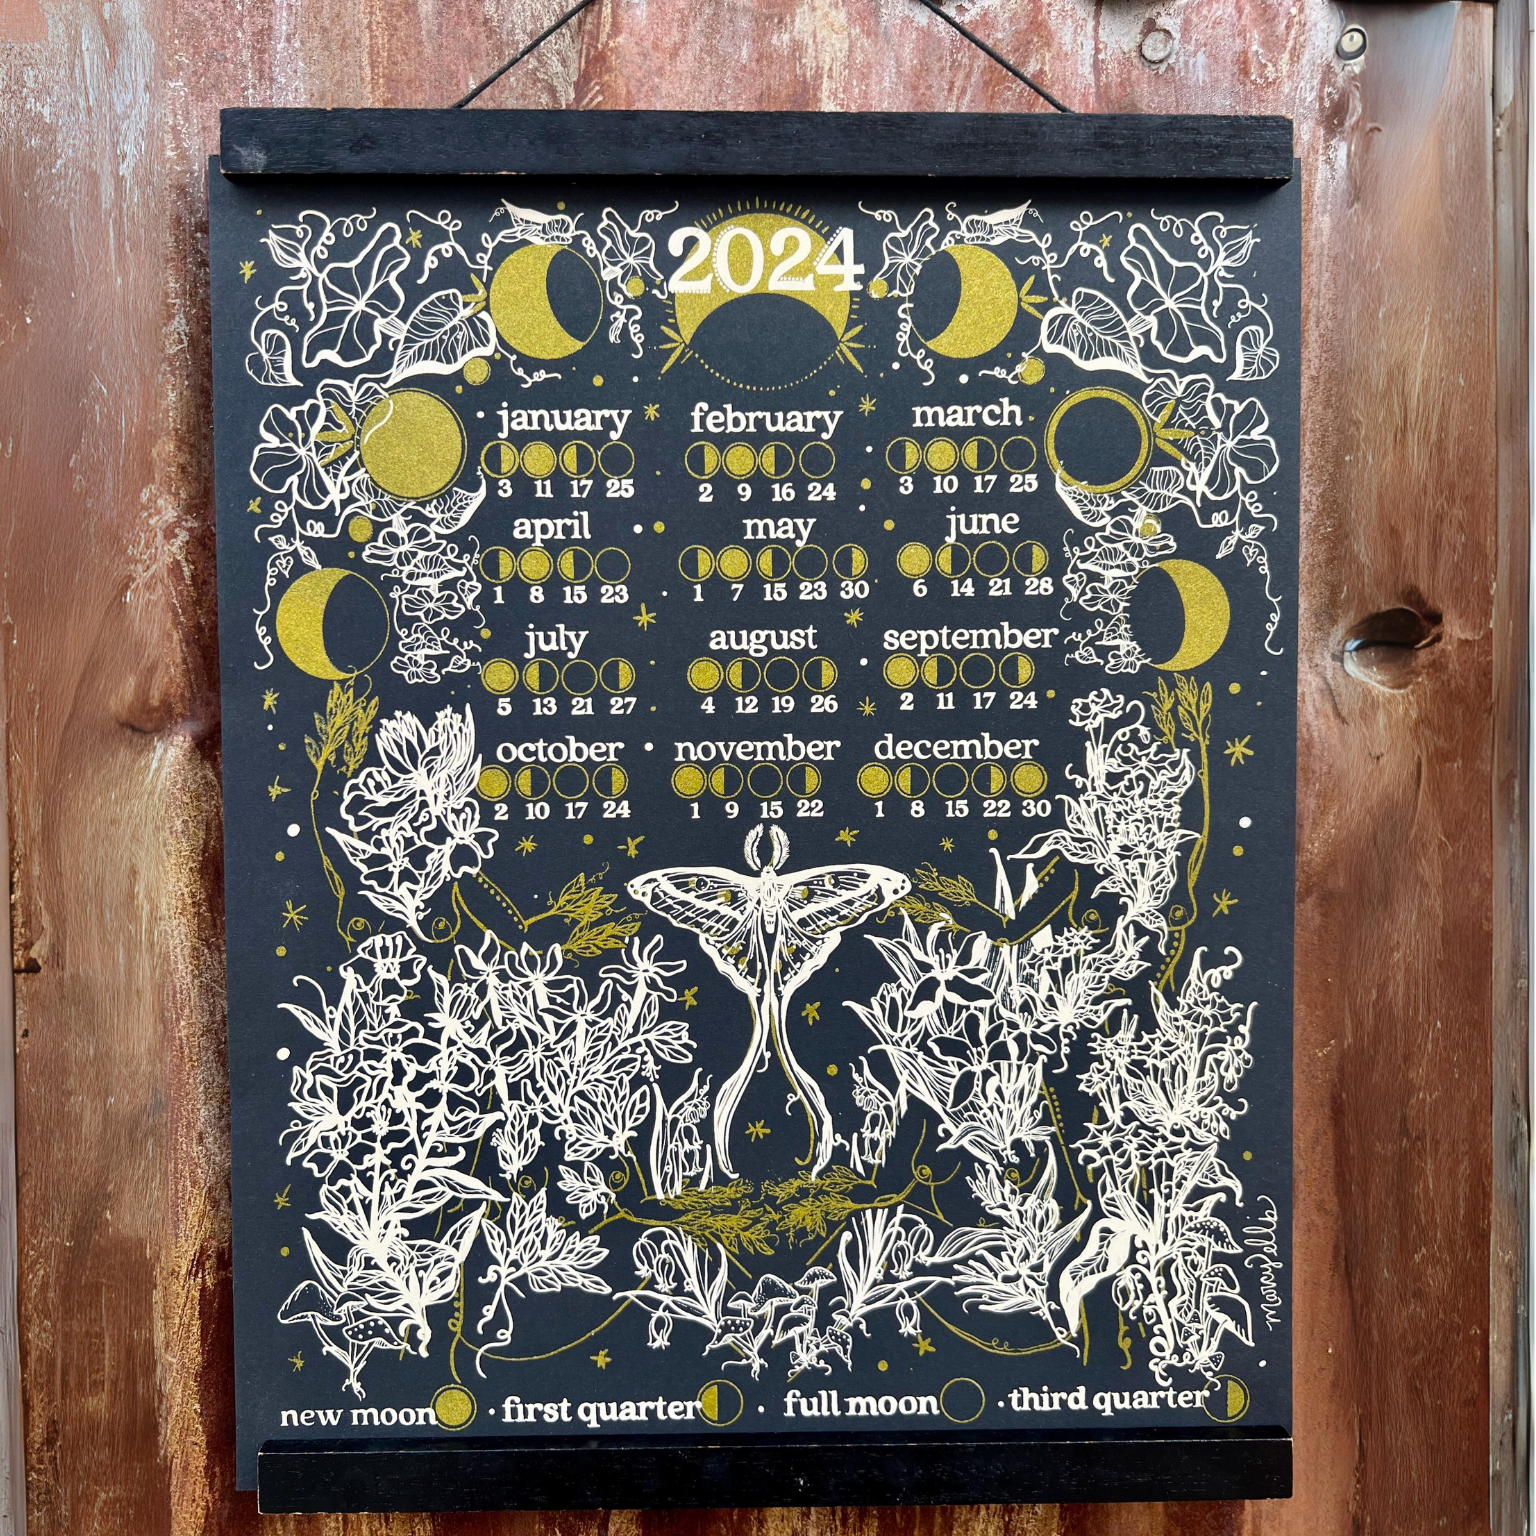 2024
january february march
3 11 17 25 2 9 16 24 3 10 17 25
april may june
1 8 15 23 1 7 15 23 30 6 14 21 28
july august september
5 13 21 27 4 12 19 26 2 11 17 24
october november december
2 10 17 24 1 9 15 22 1 8 15 22 30
marcy ellis
new moon · first quarter · full moon · third quarter